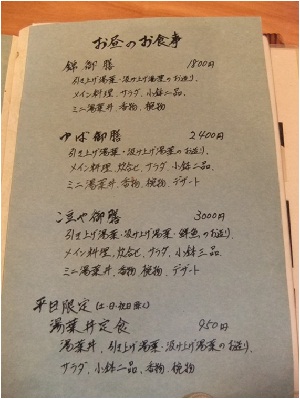 お昼のお食事
錦御膳 1800円
引き上げ湯葉・汲み上げ湯葉のお造り、
メイン料理、サラダ、小鉢二品、
ミニ湯葉丼、香物、椀物
ゆば御膳 2400円
引き上げ湯葉・汲み上げ湯葉のお造り、
メイン料理、炊合せ、サラダ、小鉢二品、
ミニ湯葉丼、香物、椀物、デザート
豆や御膳 3000円
引き上げ湯葉・汲み上げ湯葉・鮮魚のお造り、
メイン料理、炊合せ、サラダ、小鉢三品、
ミニ湯葉丼、香物、椀物、デザート
平日限定(土・日・祝日除く)
湯葉丼定食 950円
湯葉丼、引き上げ湯葉・汲み上げ湯葉のお造り
サラダ、小鉢二品、香物、椀物